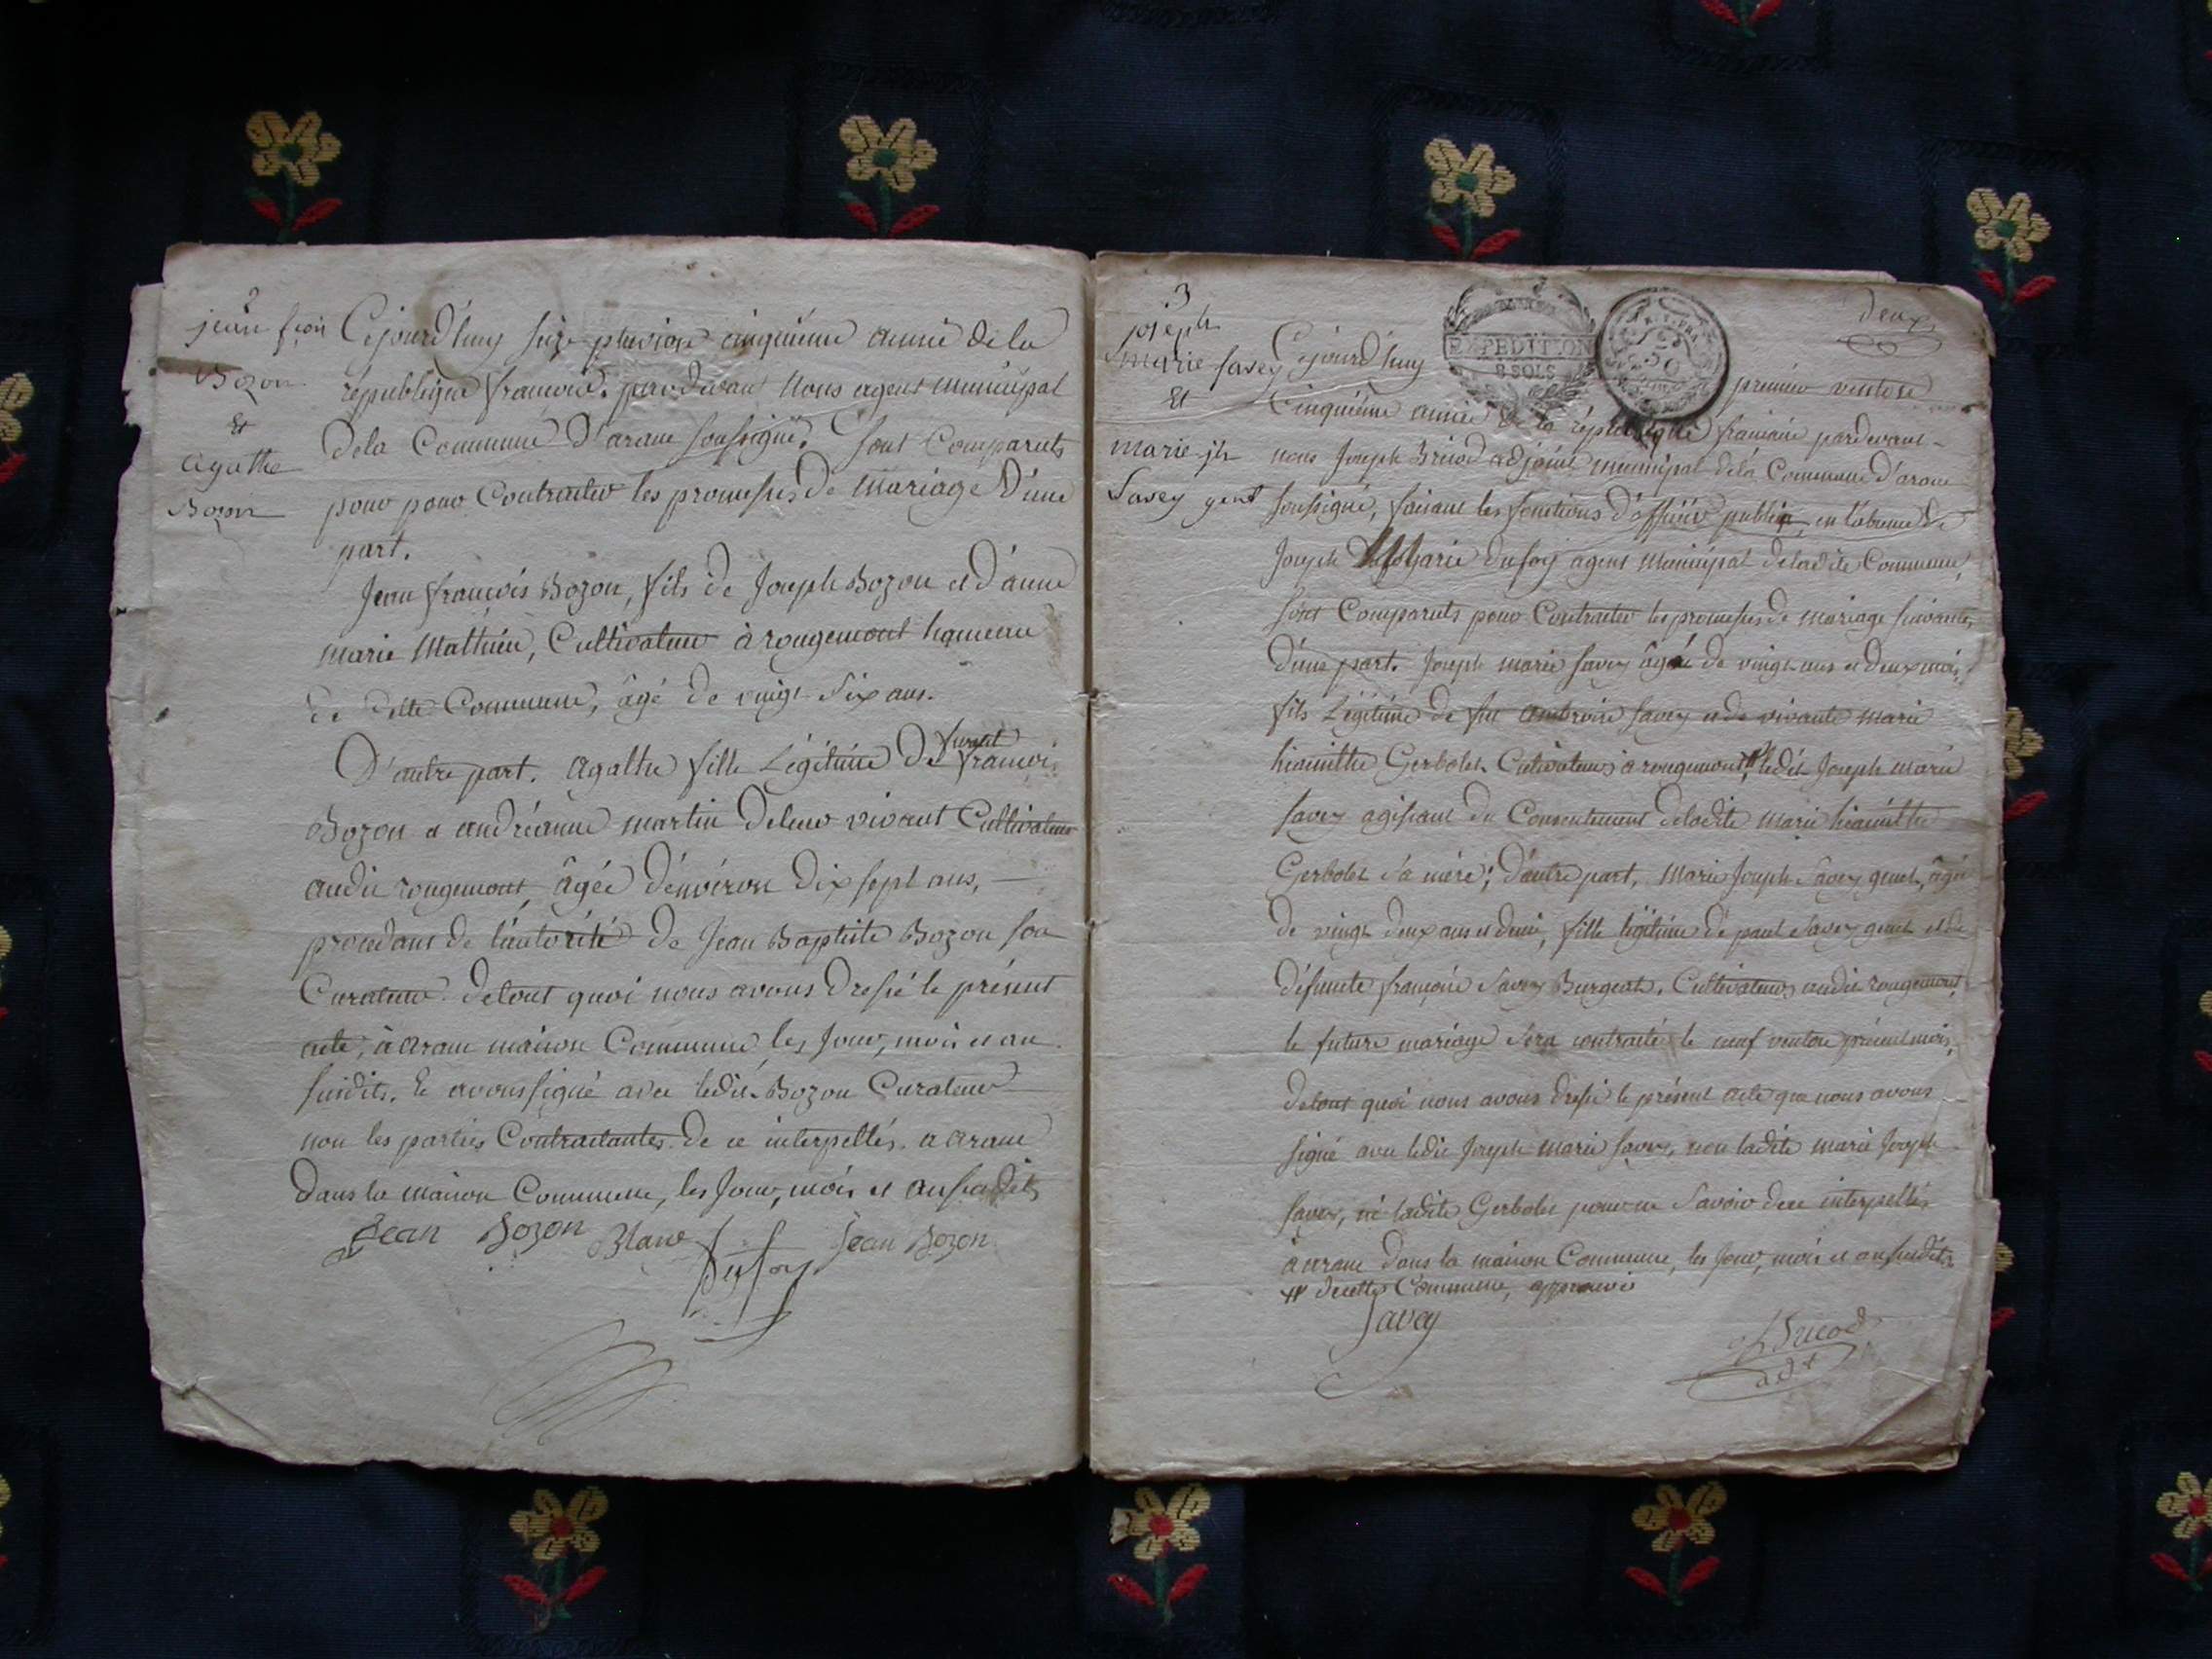 2
jean fçois
Bozon
Et
agathe
Bozon
Cejourd'huy seize pluviose cinquième année de la
république française. pardevant Nous agent municipal
dela Commune d'arane soussigné. sont Comparuts
pour pour Contracter les promesses de mariage d'une
part.
Jean françois Bozon, fils de Joseph Bozon et d'anne
marie Mathieu, Cultivateur à rougemont hameau
de dette Commune, âgé de vingt six ans.
D'autre part. agathe fille Légitime de françois
Bozon et andréanne martin deleur vivant Cultivateurs
audit rougemont, âgée d'environ dix sept ans,
procedant de l'autorité de Jean Baptiste Bozon son
Curateur. detout quoi nous avons dressé le présent
acte, à arane maison Commune les Jour, mois et an
susdits. Et avons signé avec ledit Bozon Curateur
non les parties Contractantes de ce interpellés. a arane
dans la maison Commune, les Jour, mois et an susdits
Jean Bozon Blanc Jean Bozon
Dufoy
3
deux
joseph
marie savey
Et
marie jh
Savey genet
EXPEDITION
8 SOLS
Cejourd'huy premier ventose
Cinquième année de la république française pardevant
nous Joseph Bricod adjoint municipal dela Commune d'arane
soussigné, faisant les fonctions d'officier public, en l'absence de
Joseph Marie dufoy agent Municipal deladite Commune,
sont Comparuts pour Contracter les promesses de mariage suivantes,
d'une part. Joseph marie savey âgé de vingt ans et deux mois,
fils Légitime de feu ambroise savey et de vivante marie
hiacinthe Gerbolet Cultivateurs à rougemont, ledit Joseph marie
savey agissant du Consentement deladite marie hiacinthe
Gerbolet sa mère; d'autre part, Marie Joseph Savey genet, âgée
de vingt deux ans et demi, fille légitime de paul Savey genet et de
défunte françoise Savey Burgeat, Cultivateurs audit rougemont,
le future mariage sera contracté le neuf ventose présent mois,
detout quoi nous avons dressé le présent acte que nous avons
signé avec ledit Joseph Marie savey, non ladite marie Joseph
savey, ni ladite Gerbolet pour ne Savoir de ce interpellés
à arane dans la maison Commune, les Jour, mois et an susdits
# decette Commune, approuvé
Savey
Bricod
adt